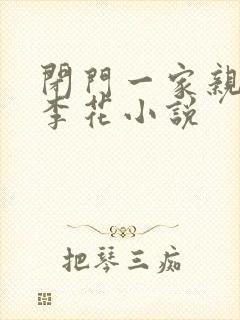 閉門一家親
李花小説
把琴三痴